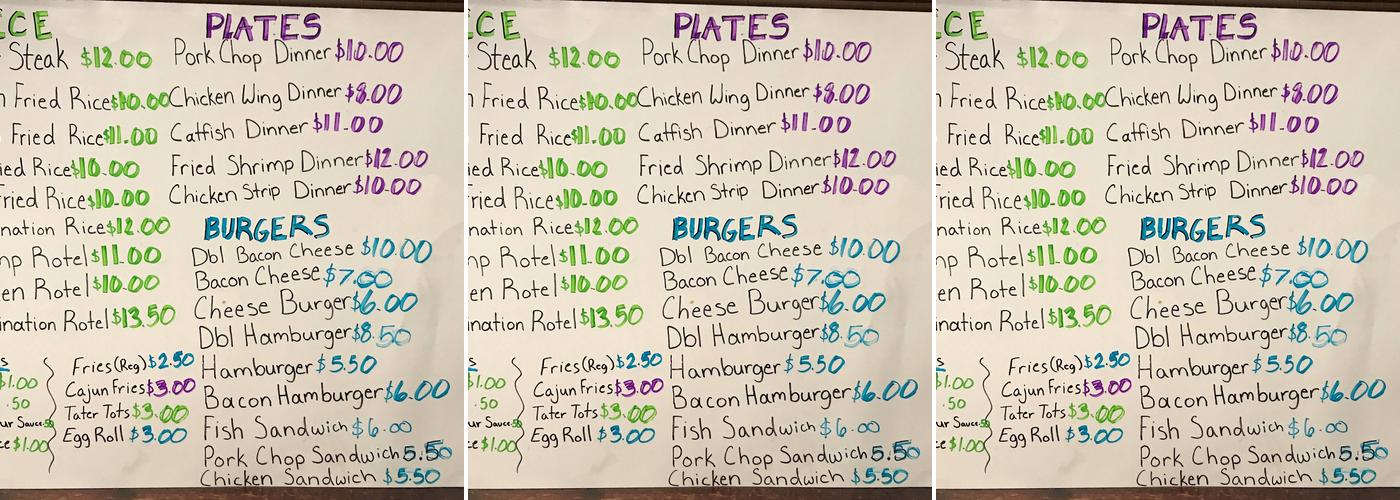 CE
Steak $12.00
n Fried Rice $10.00
Fried Rice $11.00
ied Rice $10.00
ried Rice $10.00
nation Rice $12.00
np Rotel $11.00
en Rotel $10.00
ination Rotel $13.50
$1.00
.50
ur Sauce .50
ce $1.00
Fries (Reg) $2.50
Cajun Fries $3.00
Tater Tots $3.00
Egg Roll $3.00
PLATES
Pork Chop Dinner $10.00
Chicken Wing Dinner $8.00
Catfish Dinner $11.00
Fried Shrimp Dinner $12.00
Chicken Strip Dinner $10.00
BURGERS
Dbl Bacon Cheese $10.00
Bacon Cheese $7.00
Cheese Burger $6.00
Dbl Hamburger $8.50
Hamburger $5.50
Bacon Hamburger $6.00
Fish Sandwich $6.00
Pork Chop Sandwich 5.50
Chicken Sandwich $5.50
CE
Steak $12.00
Fried Rice $10.00
Fried Rice $11.00
ied Rice $10.00
ried Rice $10.00
nation Rice $12.00
np Rotel $11.00
en Rotel $10.00
ination Rotel $13.50
$1.00
.50
ur Sauce .50
ce $1.00
Fries (Reg) $2.50
Cajun Fries $3.00
Tater Tots $3.00
Egg Roll $3.00
PLATES
Pork Chop Dinner $10.00
Chicken Wing Dinner $8.00
Catfish Dinner $11.00
Fried Shrimp Dinner $12.00
Chicken Strip Dinner $10.00
BURGERS
Dbl Bacon Cheese $10.00
Bacon Cheese $7.00
Cheese Burger $6.00
Dbl Hamburger $8.50
Hamburger $5.50
Bacon Hamburger $6.00
Fish Sandwich $6.00
Pork Chop Sandwich 5.50
Chicken Sandwich $5.50
CE
Steak $12.00
Fried Rice $10.00
Fried Rice $11.00
ied Rice $10.00
ried Rice $10.00
nation Rice $12.00
np Rotel $11.00
en Rotel $10.00
ination Rotel $13.50
$1.00
.50
ur Sauce .50
ce $1.00
Fries (Reg) $2.50
Cajun Fries $3.00
Tater Tots $3.00
Egg Roll $3.00
PLATES
Pork Chop Dinner $10.00
Chicken Wing Dinner $8.00
Catfish Dinner $11.00
Fried Shrimp Dinner $12.00
Chicken Strip Dinner $10.00
BURGERS
Dbl Bacon Cheese $10.00
Bacon Cheese $7.00
Cheese Burger $6.00
Dbl Hamburger $8.50
Hamburger $5.50
Bacon Hamburger $6.00
Fish Sandwich $6.00
Pork Chop Sandwich 5.50
Chicken Sandwich $5.50